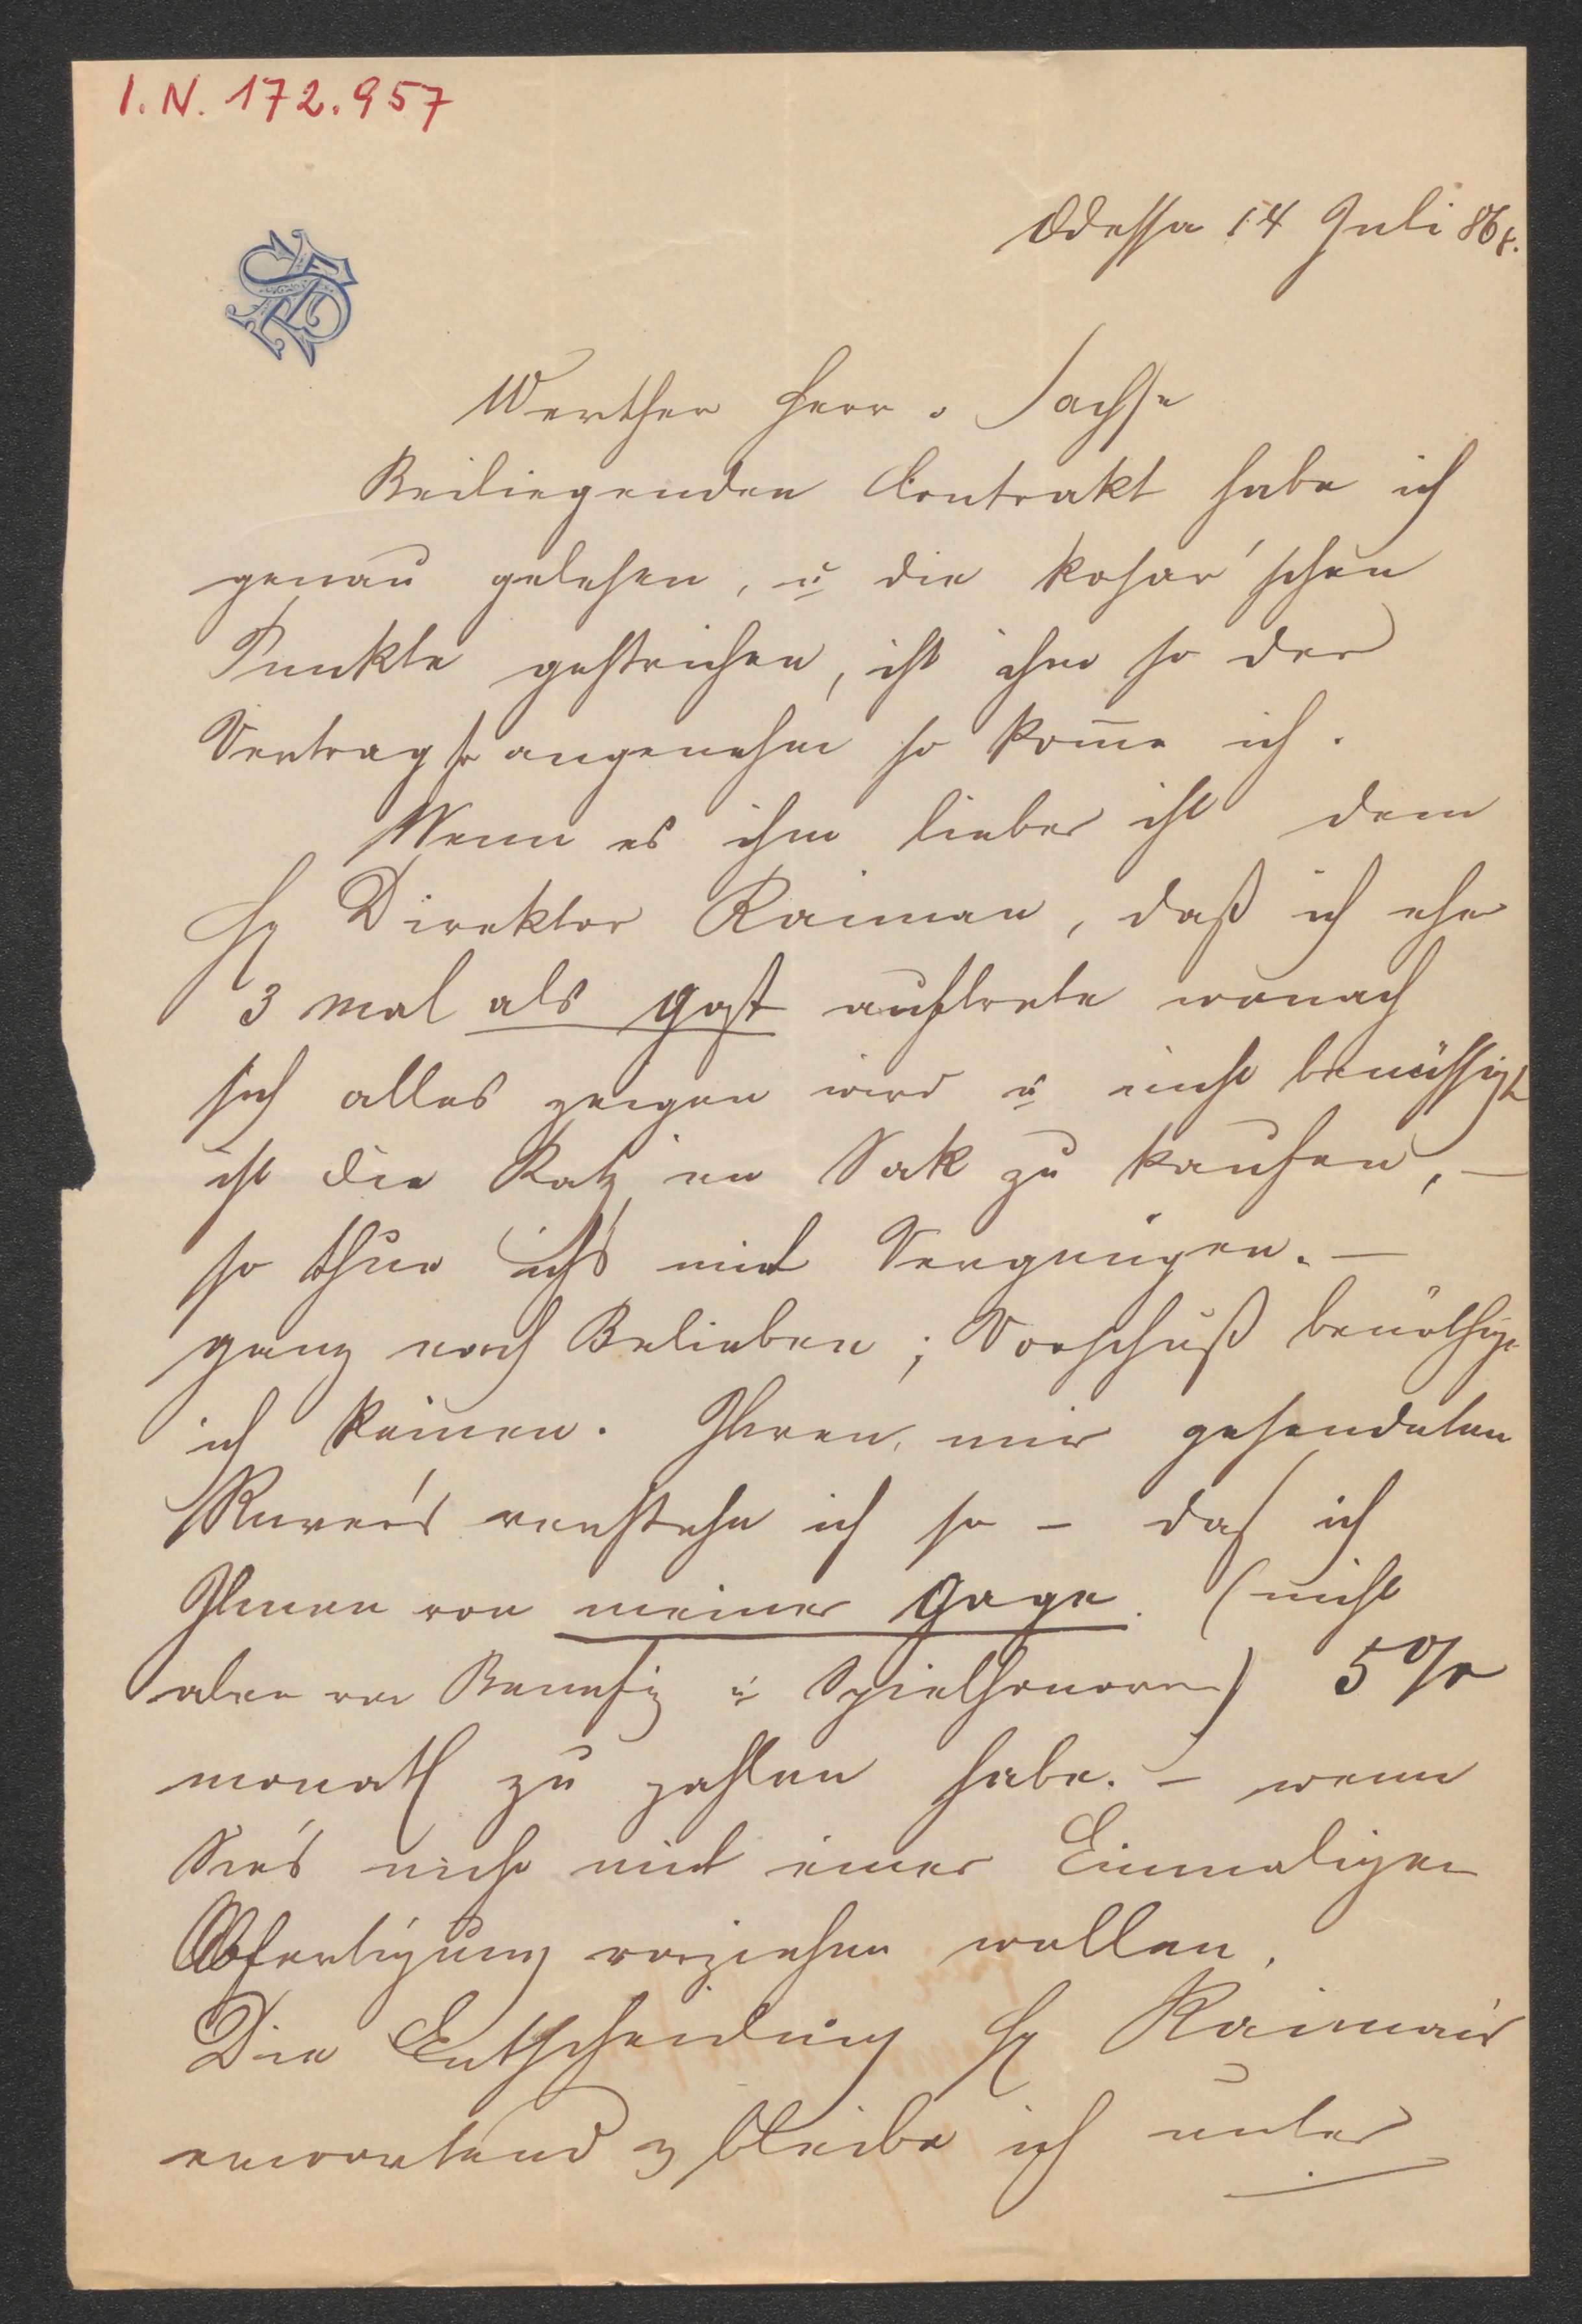 I.N. 172.957
Odessa 14 Juli 86
Werther Herr. Sachse
Beiliegenden Contrakt habe ich
genau gelesen, u die
Punkte gestrichen, ist ihm so der
Vertrag so angenehm so kom̄e ich.
Wenn es ihm lieber ist dem
H Direktor Raiman, daß ich eher
3 mal als Gast auftrete wonach
sich alles zeigen wird u nicht bemüssigt
ist die Katz im Sak zu kaufen, –
so thue ichs mit Vergnügen. –
ganz nach Belieben; Vorschuß benöthige
ich keinen. Ihren, mir gesendeten
Revers verstehe ich so – das ich
Ihnen von meiner Gage. (nicht
aber von Benefiz u Spielhonorar) 5%
monatl zu zahlen habe. – wenn
Sie's nicht mit einer Einmaligen
Abfertigung vorziehen wollen.
Die Entscheidung H Raiman's
erwartend bleibe ich unter